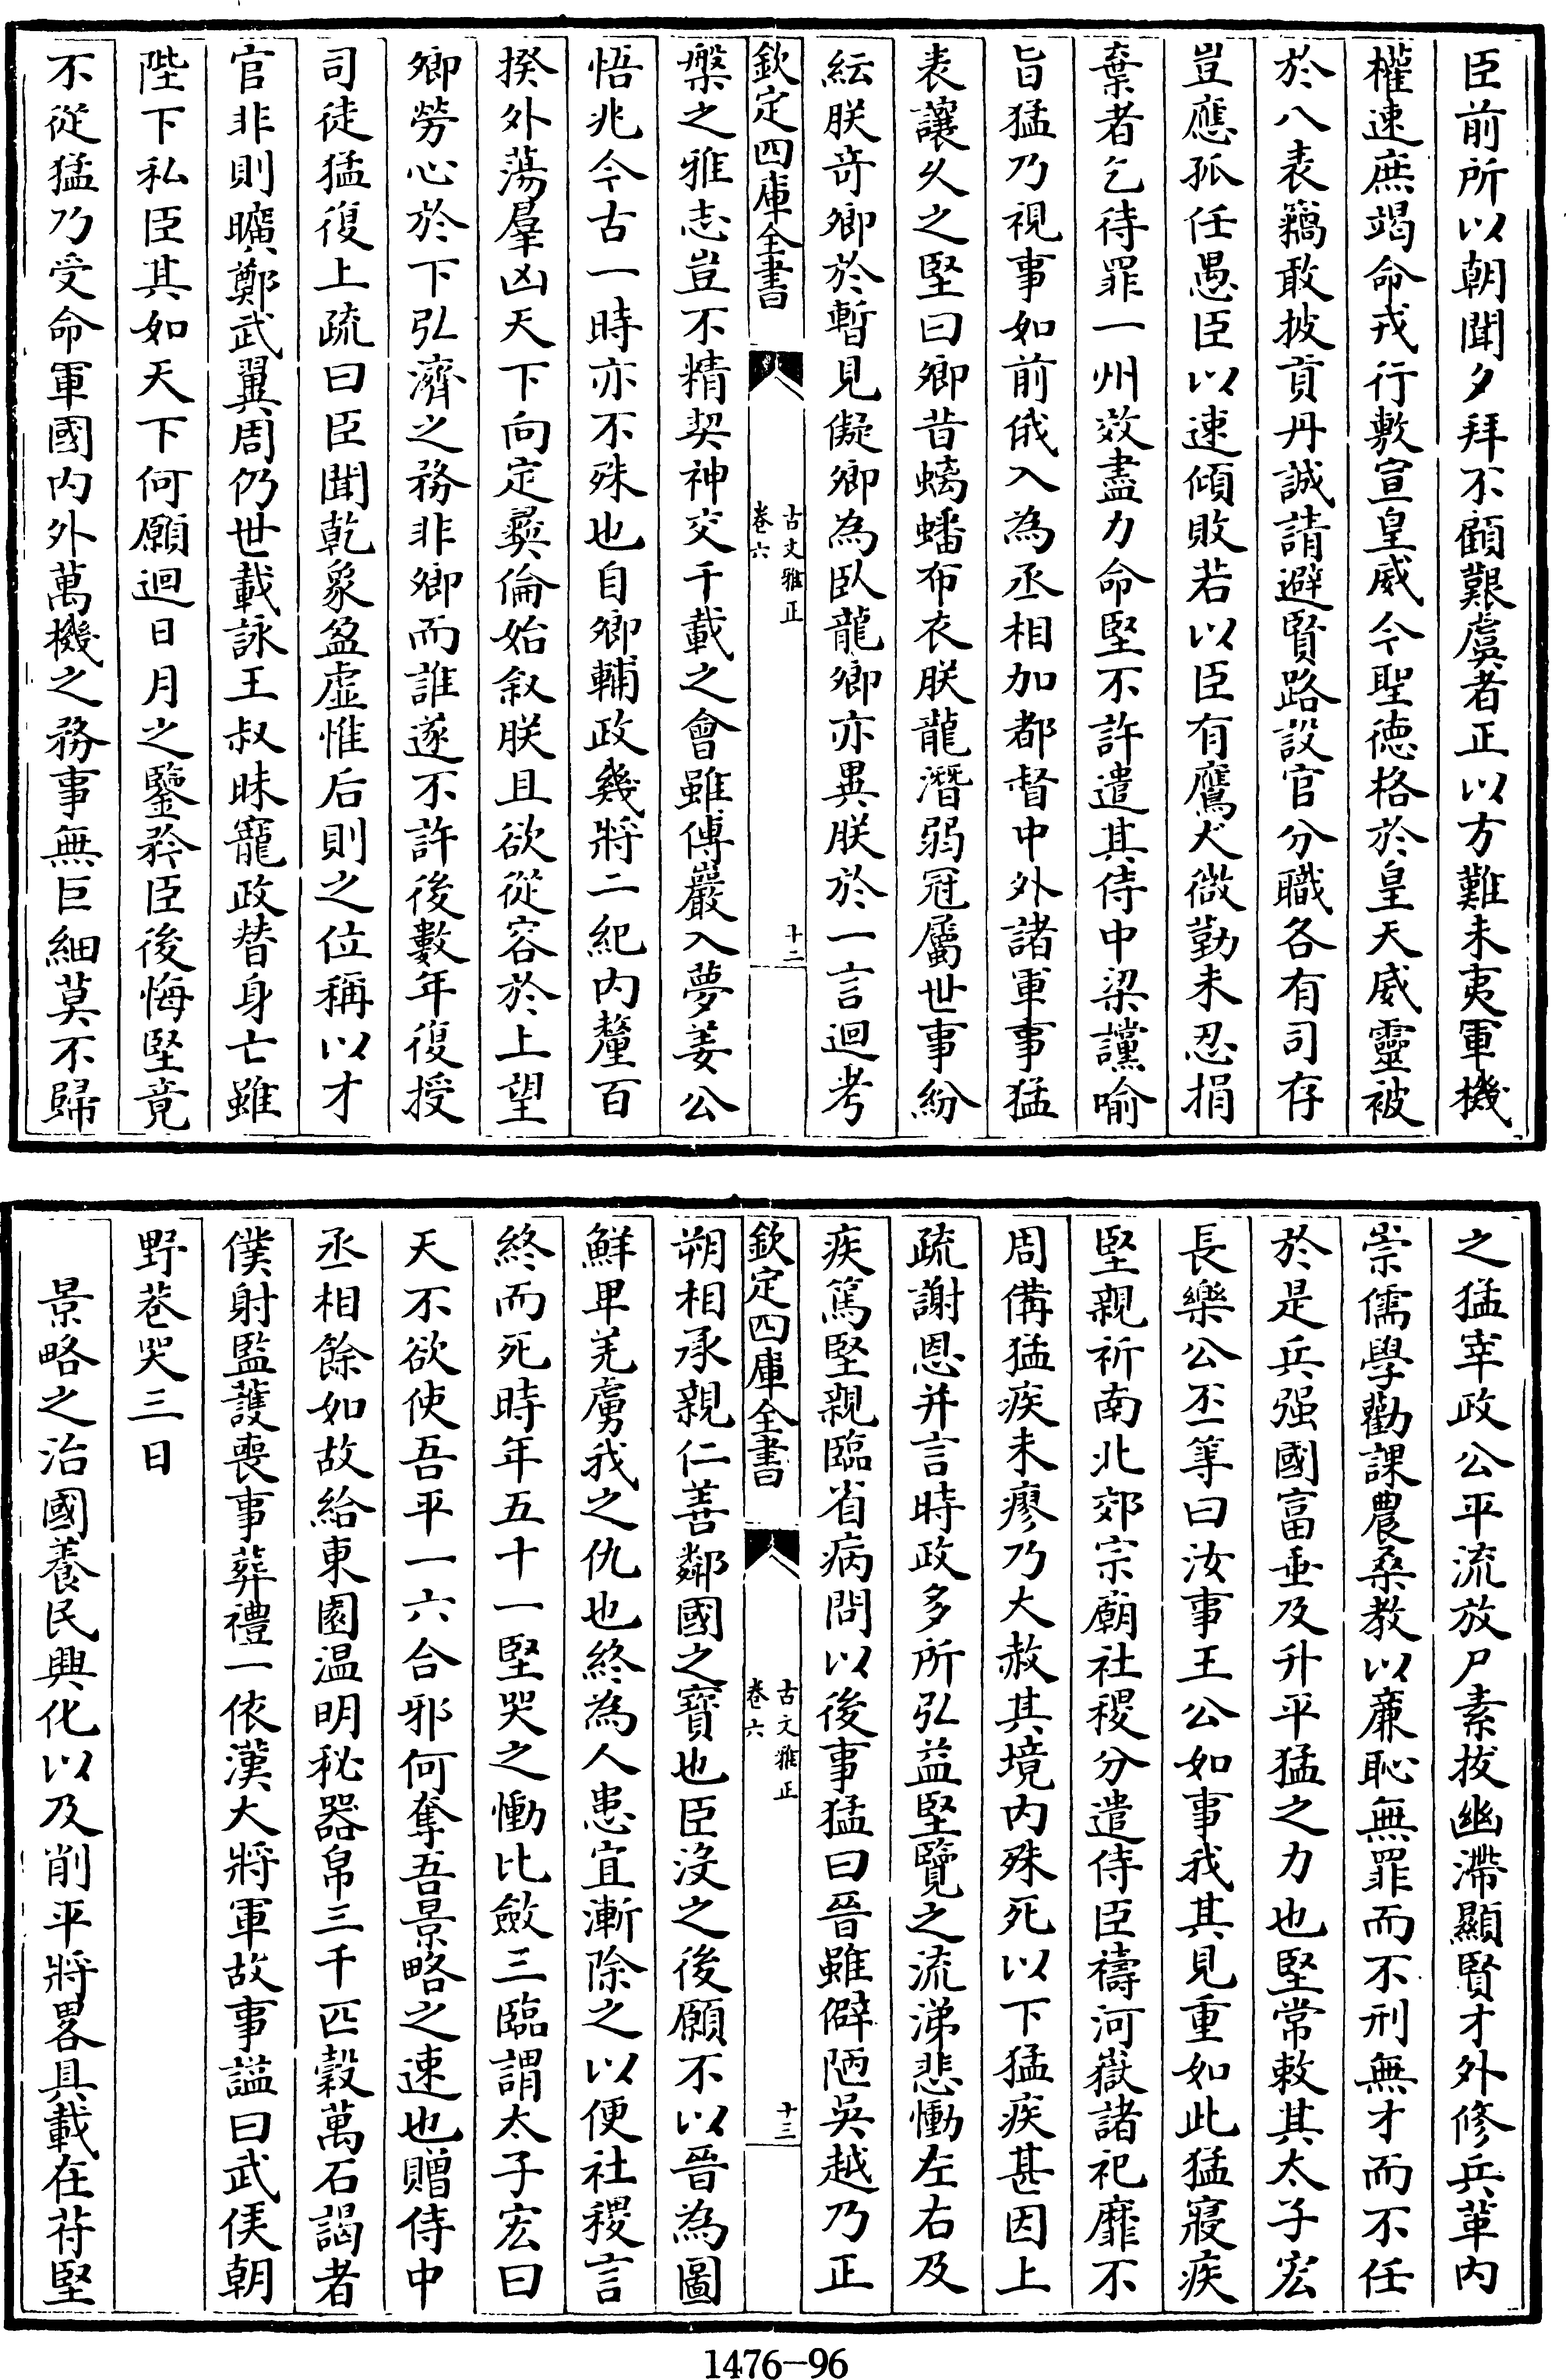 臣前所以朝聞夕拜不顧艱虞者正以方難未夷軍機
權速庶竭命戎行敷宣皇威今聖德格於皇天威靈被
於八表竊敢披貢丹誠請避賢路設官分職各有司存
豈應孤任愚臣以速傾敗若以臣有鷹犬微勤未忍捐
棄者乞待罪一州效盡力命堅不許遣其侍中梁讜喻
旨猛乃視事如前俄入為丞相加都督中外諸軍事猛
表讓久之堅曰卿昔螭蟠布衣朕龍潛弱冠屬世事紛
紜朕奇卿於暫見儗卿為臥龍卿亦異朕於一言迴考
欽定四庫全書
古文雅正
卷六
十二
槃之雅志豈不精契神交千載之會雖傅巖入夢姜公
悟兆今古一時亦不殊也自卿輔政幾將二紀內釐百
揆外蕩羣凶天下向定彝倫始叙朕且欲從容於上望
卿勞心於下弘濟之務非卿而誰遂不許後數年復授
司徒猛復上疏曰臣聞乾象盈虛惟后則之位稱以才
官非則曠鄭武翼周仍世載詠王叔昧寵政替身亡雖
陛下私臣其如天下何願迴日月之鑒矜臣後悔堅竟
不從猛乃受命軍國內外萬機之務事無巨細莫不歸
之猛宰政公平流放尸素拔幽滯顯賢才外修兵革內
崇儒學勸課農桑教以廉恥無罪而不刑無才而不任
於是兵强國富垂及升平猛之力也堅常敕其太子宏
長樂公丕等曰汝事王公如事我其見重如此猛寢疾
堅親祈南北郊宗廟社稷分遣侍臣禱河嶽諸祀靡不
周備猛疾未瘳乃大赦其境內殊死以下猛疾甚因上
疏謝恩并言時政多所弘益堅覽之流涕悲慟左右及
疾篤堅親臨省病問以後事猛曰晉雖僻陋吳越乃正
欽定四庫全書
古文雅正
卷六
十三
朔相承親仁善鄰國之寶也臣沒之後願不以晉為圖
鮮卑羌虜我之仇也終為人患宜漸除之以便社稷言
終而死時年五十一堅哭之慟比斂三臨謂太子宏曰
天不欲使吾平一六合邪何奪吾景略之速也贈侍中
丞相餘如故給東園温明秘器帛三千匹穀萬石謁者
僕射監護喪事葬禮一依漢大將軍故事謚曰武侯朝
野巷哭三日
景略之治國養民興化以及削平將畧具載在苻堅
1476-96